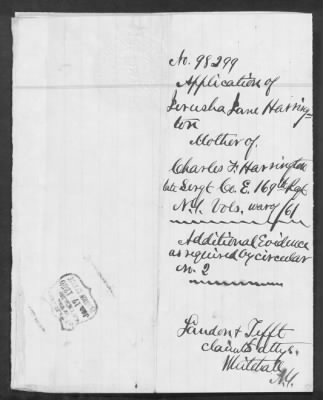 No. 98299
Application of
Jerusha Jane Harring-
ton
Mother of
Charles F. Harrington
late Sergt Co. E. 169th Regt
N.Y. Vols. war of /61
Additional Evidence
as required by circular
No. 2
Landon & Tefft
claim attys.
Whitehall
N.Y.